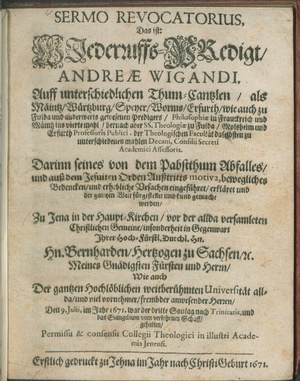 SERMO REVOCATORIUS,
Das ist:
Wiederruffs-Predigt/
ANDREÆ WIGANDI,
Auff unterschiedlichen Thum-Cantzlen / als
Mäintz/ Würtzburg/ Speyer/ Worms/ Erfurth/ wie auch zu
Fulda und anderwerts gewesenen Predigers / Philosophiæ in Franckreich und
Mäintz ins vierte
Erfurth Professoris Publici, der Theologischen Facultät daselbsten zu
unterschiedenen mahlen Decani, Consilii Secreti
Academici Assessoris.
Darinn seines von dem Pabstthum Abfalles/
und auß dem Jesuiten Orden Außtritts motiva, bewegliches
Bedencken/ und erhebliche Ursachen eingeführet/ erkläret und
der gantzen Welt fürgestellet und kund gemacht
werden/
Zu Jena in der Haupt-Kirchen/ vor der allda versamleten
Christlichen Gemeine/ insonderheit in Gegenwart
Ihrer Hoch-Fürstl. Durchl. Hn.
Hn. Bernharden/ Hertzogen zu Sachsen/ ꝛc.
Meines Gnädigsten Fürsten und Herrn/
Wie auch
Der gantzen Hochlöblichen weitberühmten Universität all-
da/ und viel vornehmer/ frembder anwesender Herren/
Den 9. Julii, im Jahr 1671. war der dritte Sontag nach Trinitatis, und
das Evangelium vom verlohrnen Schaff/
gehalten/
Permissu & consensu Collegii Theologici in illustri Acade-
mia Jenensi.
Erstlich gedruckt zu Jehna im Jahr nach Christi Geburt 1671.